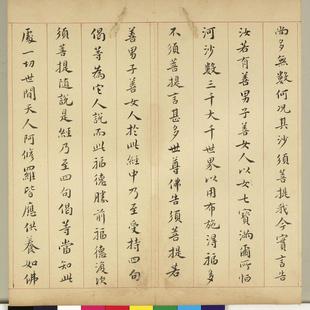 尚多無數何況其沙須菩提我今實言告
汝若有善男子善女人以七寶滿爾所恒
河沙數三千大千世界以用布施得福多
不須菩提言甚多世尊佛告須菩提若
善男子善女人於此經中乃至受持四句
偈等為他人說而此福德勝前福德復次
須菩提隨說是經乃至四句偈等當知此
處一切世間天人阿修羅皆應供養如佛